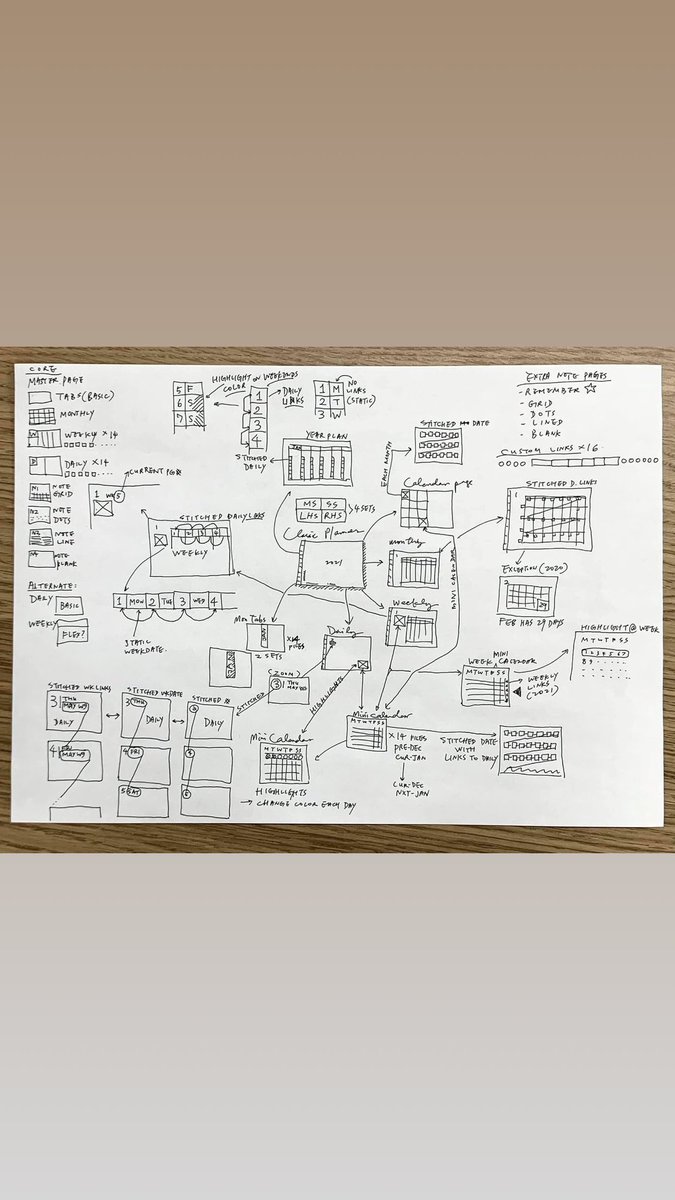 CORE
MASTER PAGE
TABS (BASIC)
MONTHLY
W WEEKLY ×14
D DAILY ×14
N1 NOTE GRID
N2 NOTE DOTS
N3 NOTE LINE
N4 NOTE BLANK
ALTERNATE:
DAILY BASIC
WEEKLY FLEX?
CURRENT PG
HIGHLIGHT ON WEEKENDS
COLOR
5 F
6 S
7 S
1
2
3
4
DAILY LINKS
STITCHED DAILY
1 M
2 T
3 W
NO LINKS
(STATIC)
EXTRA NOTE PAGES
- REMEMBER
- GRID
- DOTS
- LINED
- BLANK
CUSTOM LINKS ×16
STITCHED MO DATE
EACH MONTH
YEAR PLAN
MS SS
LHS RHS
4 SETS
Classic Planner
2021
Calendar page
STITCHED D. LINKS
EXCEPTION (2020)
29
FEB HAS 29 DAYS
STITCHED DAILY
1 2 3 4
WEEKLY
1 MON 2 TUE 3 WED 4
STATIC
WEEKDATE
monthly
MINI CALENDAR
Weekly
Mon Tabs
×14 FILES
2 SETS
Daily
(ZOOM)
HIGHLIGHTS
STITCHED
MINI
WEEK CALENDER
M T W T F S S
WEEKLY LINKS
(2021)
HIGHLIGHT @ WEEK
M T W T F S S
1 2 3 4 5 6 7
8 9
STITCHED WK LINKS
3 THU
DAILY
4
STITCHED WKDATE
3 THU
DAILY
4 FRI
5 SAT
STITCHED
3
DAILY
4
5
Mini Calendar
M T W T F S S
HIGHLIGHTS
→ CHANGE COLOR EACH DAY
Mini Calendar
M T W T F S S
×14 FILES
PRE-DEC
CUR-JAN
CUR-DEC
NXT-JAN
STITCHED DATE
WITH
LINKS TO DAILY